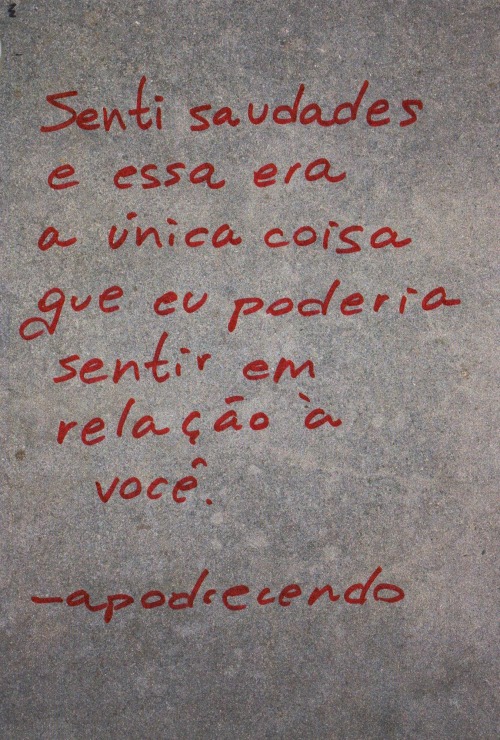 Senti saudades
e essa era
a única coisa
que eu poderia
sentir em
relação à
você.
-apodrecendo